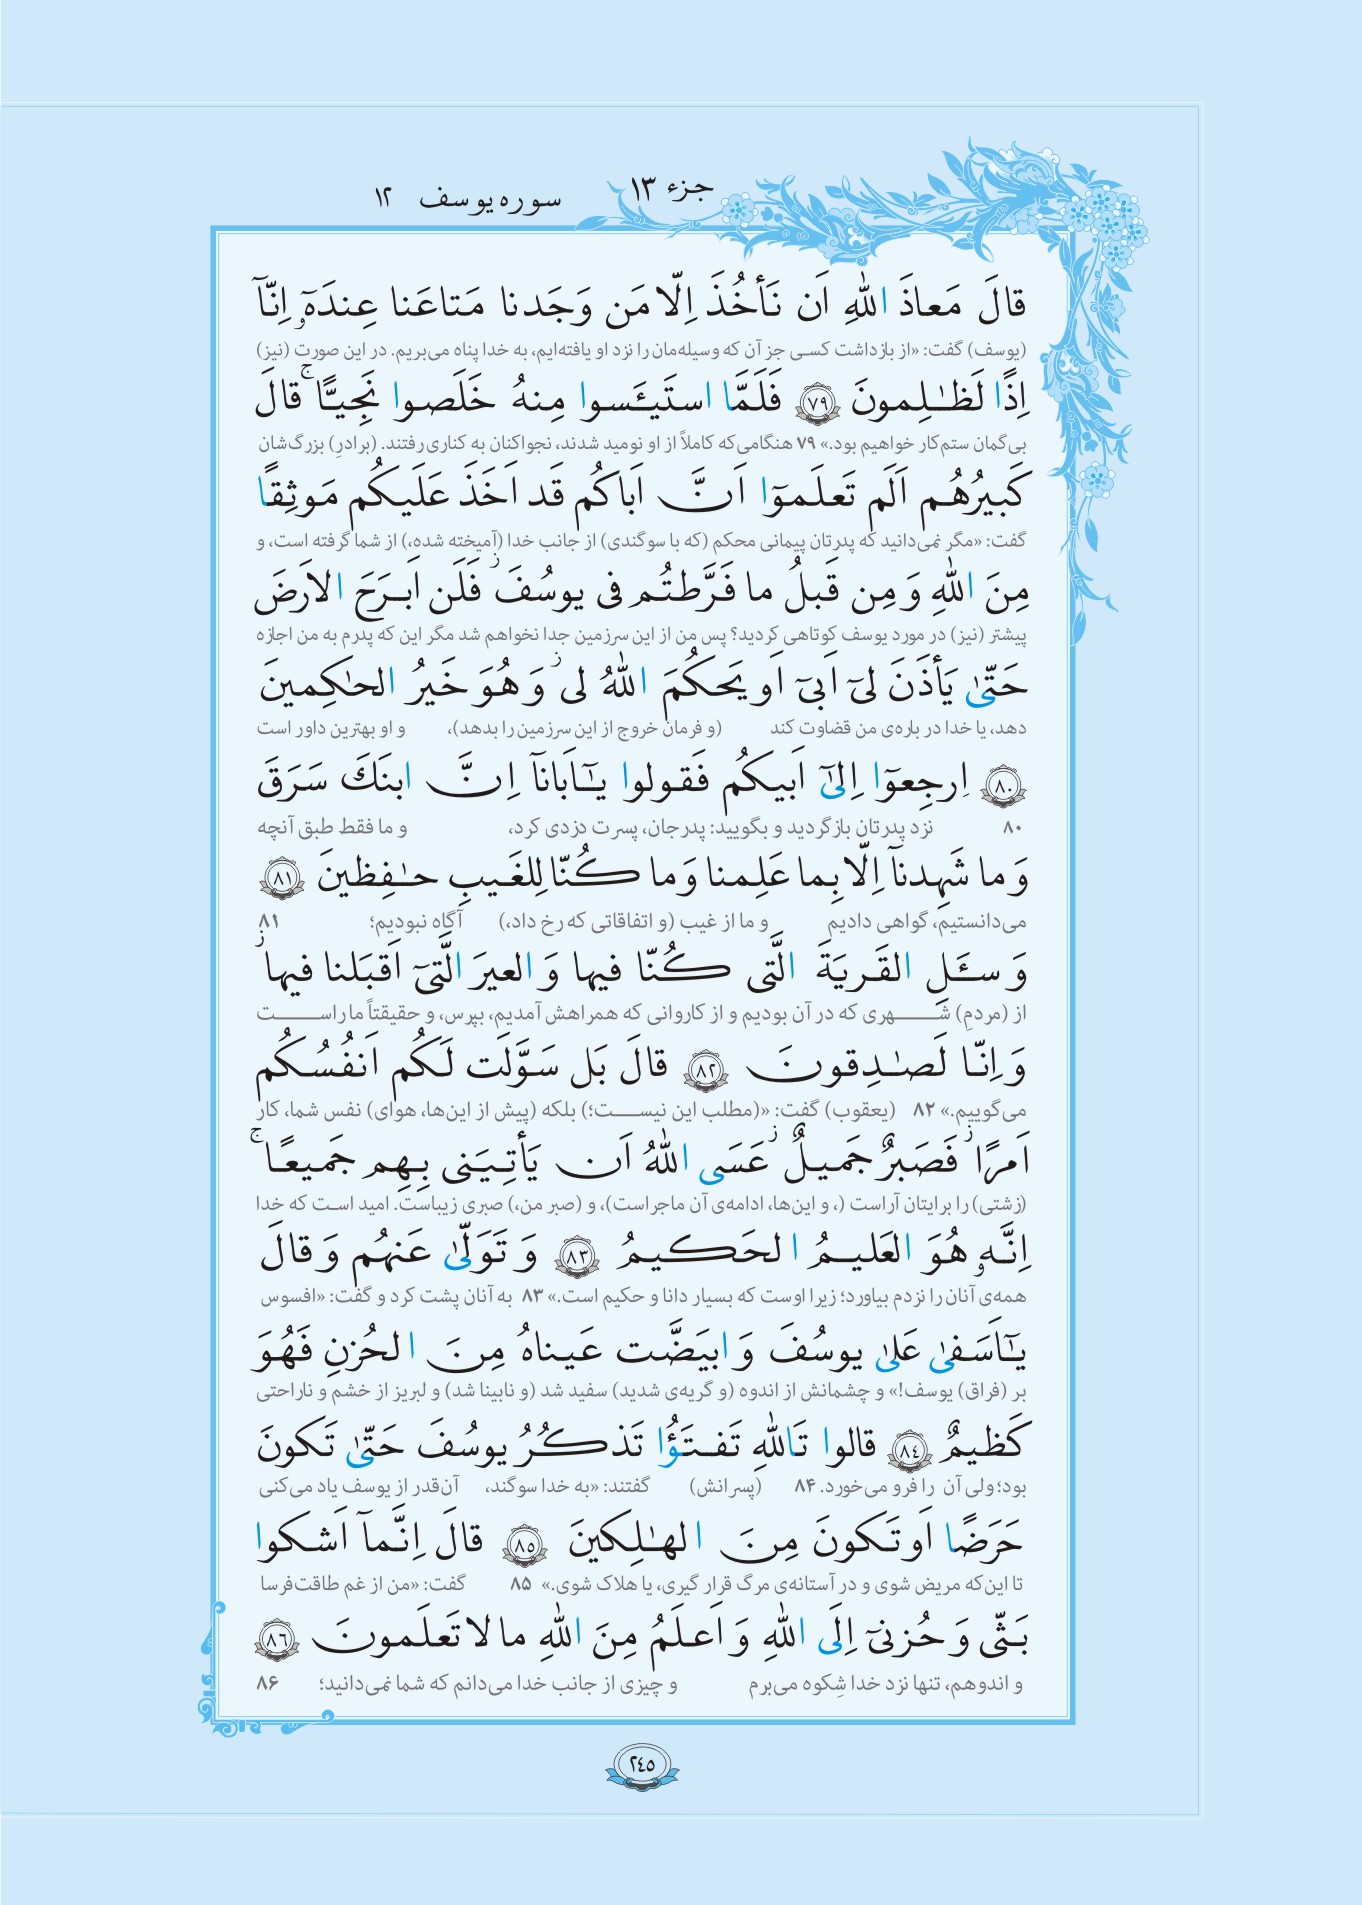 جزء ۱۳
سوره یوسف ۱۲
قالَ مَعاذَ اللّٰهِ اَن نَأخُذَ اِلّا مَن وَجَدنا مَتاعَنا عِندَهٓۥ اِنّآ
(یوسف) گفت: «از بازداشت کسی جز آن که وسیله‌مان را نزد او یافته‌ایم، به خدا پناه می‌بریم. در این صورت (نیز)
اِذًا لَظـٰلِمونَ ﴿٧٩﴾ فَلَمَّا استَيـَٔسوا مِنهُ خَلَصوا نَجِيًّا ۚ قالَ
بی‌گمان ستم‌کار خواهیم بود.» ۷۹ هنگامی‌که کاملاً از او نومید شدند، نجواکنان به کناری رفتند. (برادرِ) بزرگ‌شان
كَبيرُهُم اَلَم تَعلَموٓا اَنَّ اَباكُم قَد اَخَذَ عَلَيكُم مَوثِقًا
گفت: «مگر نمی‌دانید که پدرتان پیمانی محکم (که با سوگندی) از جانب خدا (آمیخته شده،) از شما گرفته است، و
مِنَ اللّٰهِ وَ مِن قَبلُ ما فَرَّطتُم فی يوسُفَ ز فَلَن اَبرَحَ الاَرضَ
پیشتر (نیز) در مورد یوسف کوتاهی کردید؟ پس من از این سرزمین جدا نخواهم شد مگر این که پدرم به من اجازه
حَتّیٰ يَأذَنَ لیٓ اَبیٓ اَو يَحكُمَ اللّٰهُ لی ز وَ هُوَ خَيرُ الحاكِمينَ
دهد، یا خدا در باره‌ی من قضاوت کند (و فرمان خروج از این سرزمین را بدهد)، و او بهترین داور است
﴿٨٠﴾ اِرجِعوٓا اِلیٰٓ اَبيكُم فَقولوا يـٰٓاَبانآ اِنَّ ابنَكَ سَرَقَ
۸۰ نزد پدرتان بازگردید و بگویید: پدرجان، پسرت دزدی کرد، و ما فقط طبق آنچه
وَ ما شَهِدنآ اِلّا بِما عَلِمنا وَ ما كُنّا لِلغَيبِ حـٰفِظينَ ﴿٨١﴾
می‌دانستیم، گواهی دادیم و ما از غیب (و اتفاقاتی که رخ داد،) آگاه نبودیم؛ ۸۱
وَ سـَٔلِ القَريَةَ الَّتی كُنّا فيها وَ العيرَ الَّتیٓ اَقبَلنا فيها ز
از (مردمِ) شهری که در آن بودیم و از کاروانی که همراهش آمدیم، بپرس، و حقیقتاً ما راست
وَ اِنّا لَصـٰدِقونَ ﴿٨٢﴾ قالَ بَل سَوَّلَت لَكُم اَنفُسُكُم
می‌گوییم.» ۸۲ (یعقوب) گفت: «(مطلب این نیست؛) بلکه (پیش از این‌ها، هوای) نفس شما، کار
اَمرًا ز فَصَبرٌ جَميلٌ ز عَسَی اللّٰهُ اَن يَأتِيَنی بِهِم جَميعًا ۚ
(زشتی) را برایتان آراست (، و این‌ها، ادامه‌ی آن ماجراست)، و (صبر من،) صبری زیباست. امید است که خدا
اِنَّهۥ هُوَ العَليمُ الحَكيمُ ﴿٨٣﴾ وَ تَوَلّیٰ عَنهُم وَ قالَ
همه‌ی آنان را نزدم بیاورد؛ زیرا اوست که بسیار دانا و حکیم است.» ۸۳ به آنان پشت کرد و گفت: «افسوس
يـٰٓاَسَفیٰ عَلیٰ يوسُفَ وَ ابيَضَّت عَيناهُ مِنَ الحُزنِ فَهُوَ
بر (فراق) یوسف!» و چشمانش از اندوه (و گریه‌ی شدید) سفید شد (و نابینا شد) و لبریز از خشم و ناراحتی
كَظيمٌ ﴿٨٤﴾ قالوا تَاللّٰهِ تَفتَؤُا تَذكُرُ يوسُفَ حَتّیٰ تَكونَ
بود؛ ولی آن را فرو می‌خورد. ۸۴ (پسرانش) گفتند: «به خدا سوگند، آن‌قدر از یوسف یاد می‌کنی
حَرَضًا اَو تَكونَ مِنَ الهـٰلِكينَ ﴿٨٥﴾ قالَ اِنَّمآ اَشكوا
تا این‌که مریض شوی و در آستانه‌ی مرگ قرار گیری، یا هلاک شوی.» ۸۵ گفت: «من از غم طاقت‌فرسا
بَثّی وَ حُزنیٓ اِلَی اللّٰهِ وَ اَعلَمُ مِنَ اللّٰهِ ما لا تَعلَمونَ ﴿٨٦﴾
و اندوهم، تنها نزد خدا شِکوه می‌برم و چیزی از جانب خدا می‌دانم که شما نمی‌دانید؛ ۸۶
٢٤٥